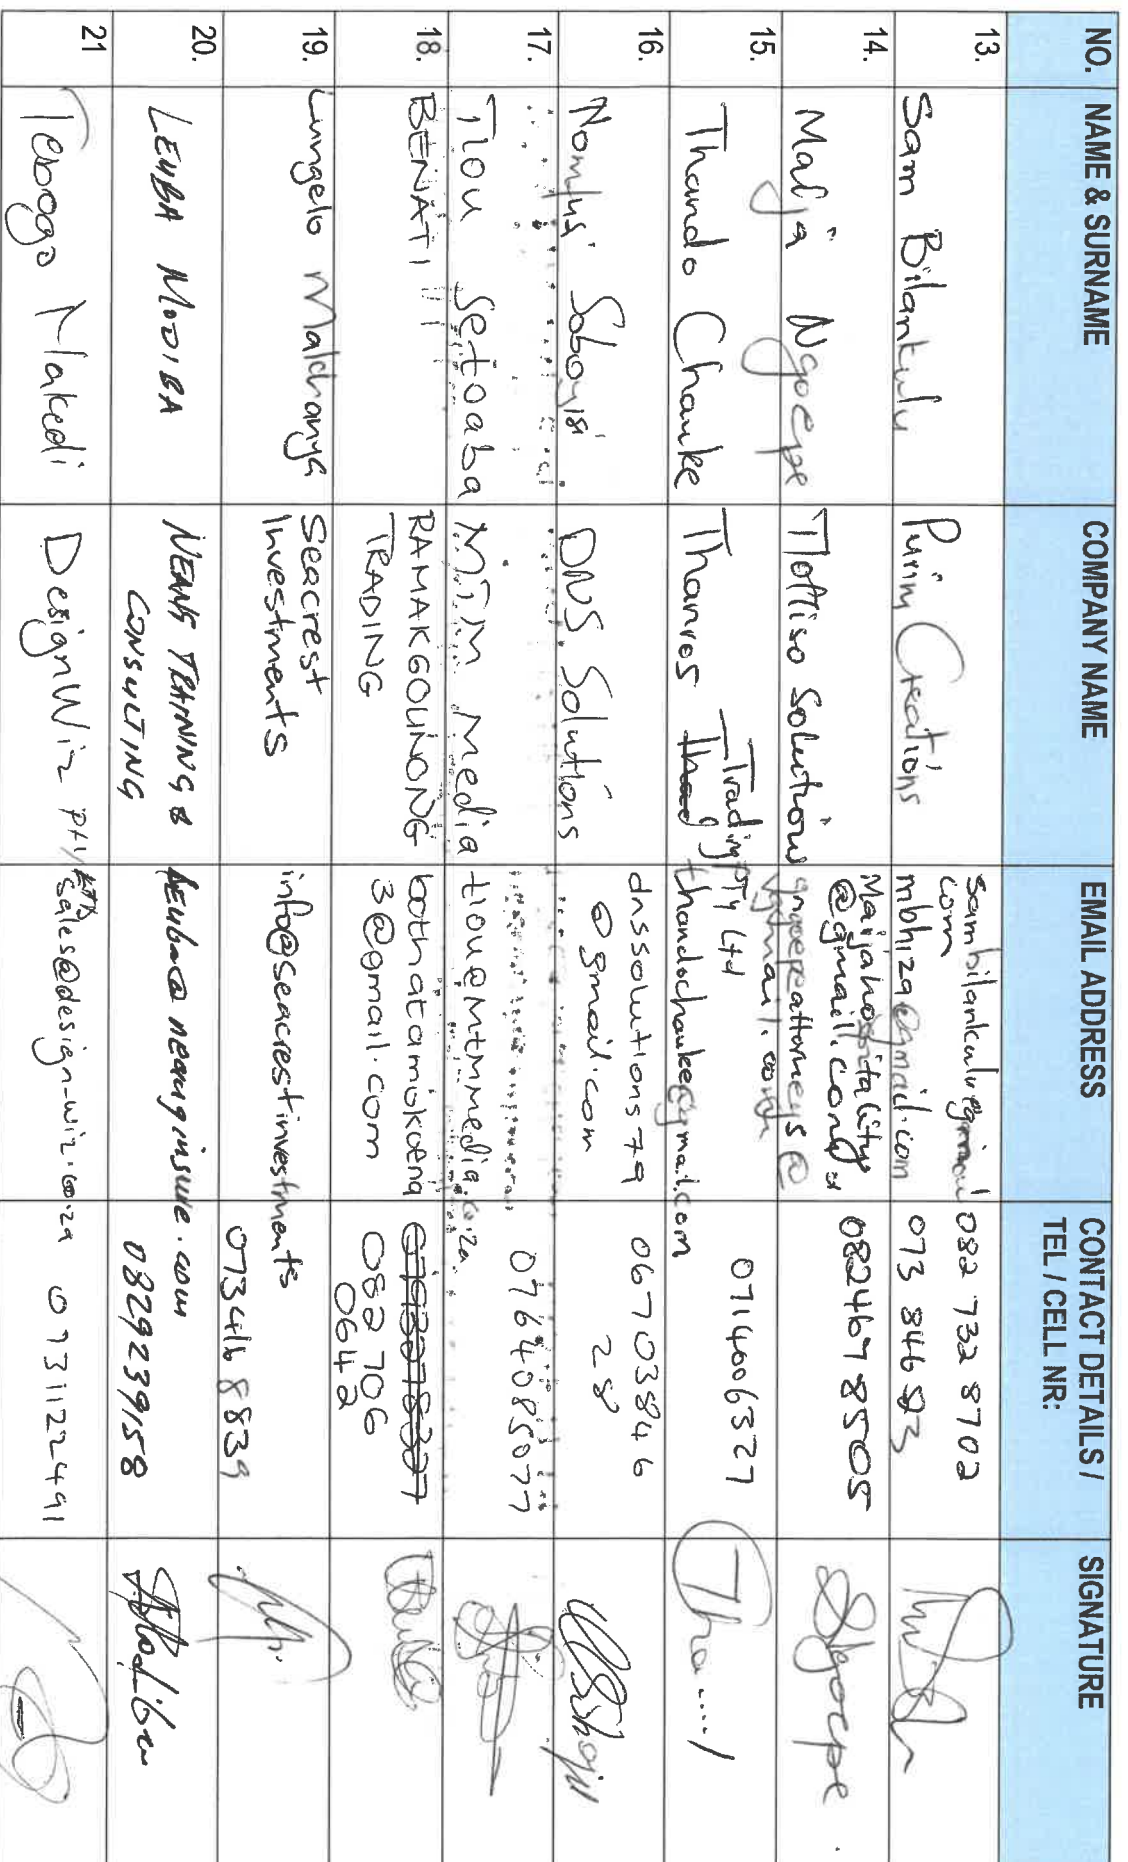 NO. NAME & SURNAME COMPANY NAME EMAIL ADDRESS CONTACT DETAILS / TEL / CELL NR: SIGNATURE
13. Sam Bilankulu Purim Creations sambilankulu@gmail.com 082 732 8702
mbhiza@gmail.com 073 846 823
14. Maija Ngoepe Tloftiso Solutions Maijahospitality @gmail.com 0824678505
ngoepeattorneys@gmail.com
15. Thando Chauke Thanros Trading PTY Ltd thandochauke@gmail.com 0714006327
16. Nomfusi Soboyisi DNS Solutions dnssolutions79
@gmail.com 06703846
28
17. Tlou Setoaba MTM Media tlou@mtmmedia.co.za 0764085077
18. BENATI RAMAKGOUNONG
TRADING bothatamokoena
3@gmail.com 082 706
0642
19. Lungelo Malchanya Seacrest
Investments info@seacrestinvestments 073416 8839
20. LEUBA MODIBA NEANG TRAINING &
CONSULTING leuba@neanginsure.com 0829239158
21 Tebogo Nakedi DesignWiz Pty Ltd sales@design-wiz.co.za 0731122491